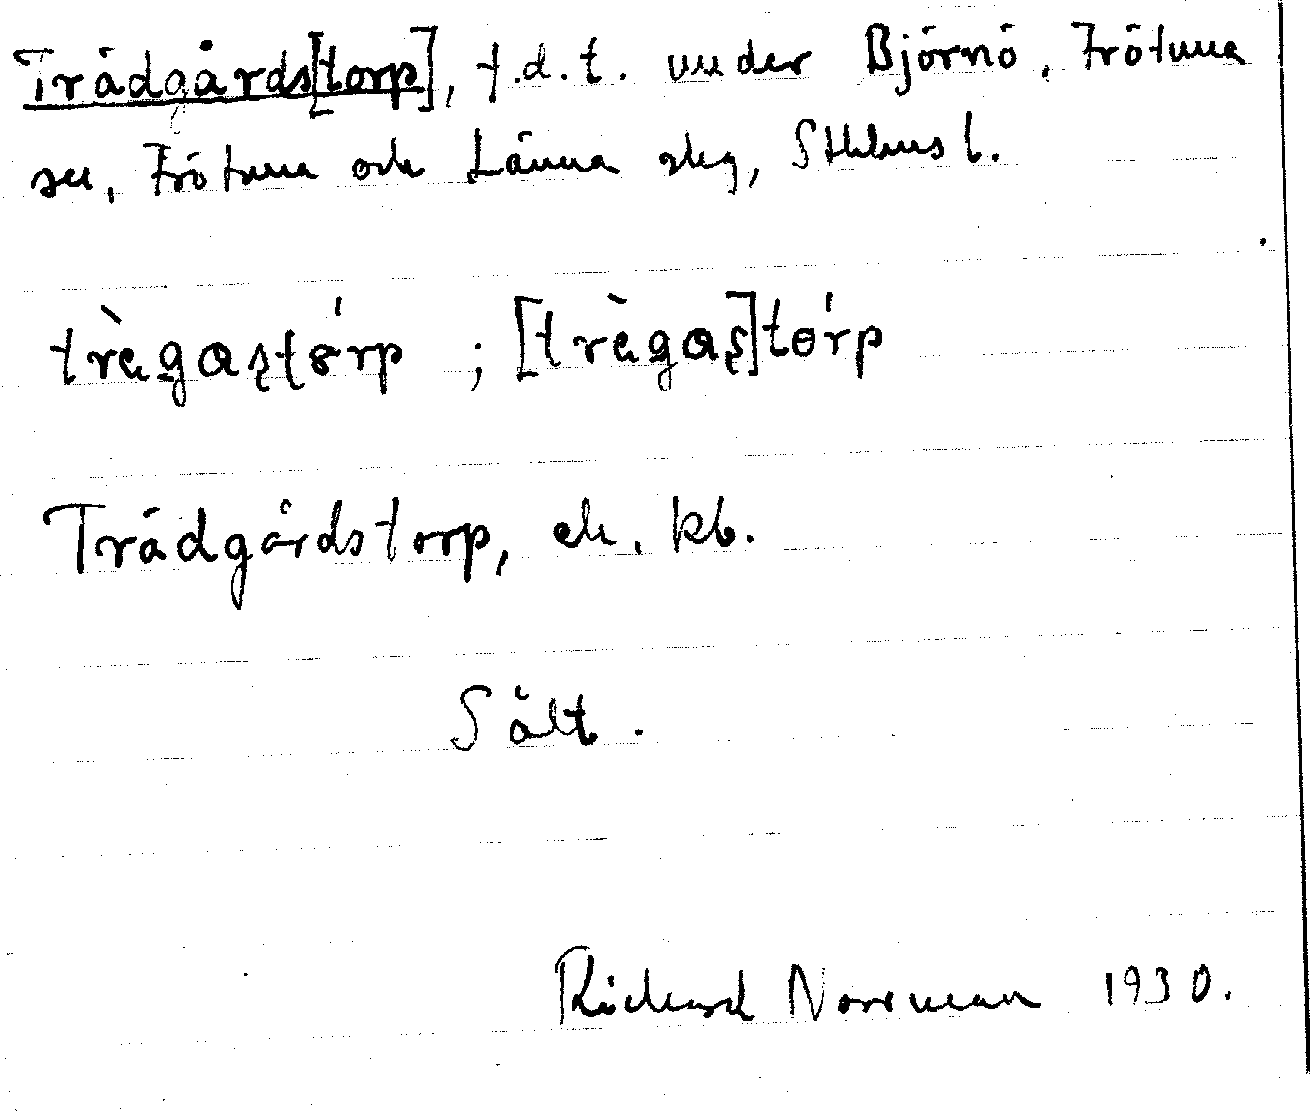 Trädgårds[torp], f.d.t. under Björnö, Frötuna
sn, Frötuna och Länna skg, Sthlms l.
trɛ̀gaʂʈɵ́rp ; [trɛ̀gaʂ]tɵ́rp
Trädgårdstorp, ek. kb.
Sält.
Rickard Norrman 1930.